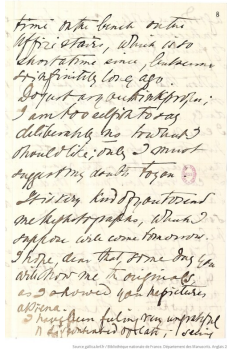 8
time on the bench on the
office stairs, which is so
short a time since, but seems
so infinitely long ago.
Do just as you think proper;
I am too selfish to say
deliberately no to what I
should like; only I must
suggest my doubts to you.
It is very kind of you to send
me the photographs, which I
suppose will come tomorrow.
I hope, dear, that some day you
will show me the originals
as I showed you the pictures
I have been feeling very ungrateful
Source gallica.bnf.fr / Bibliothèque nationale de France. Département des Manuscrits. Anglais